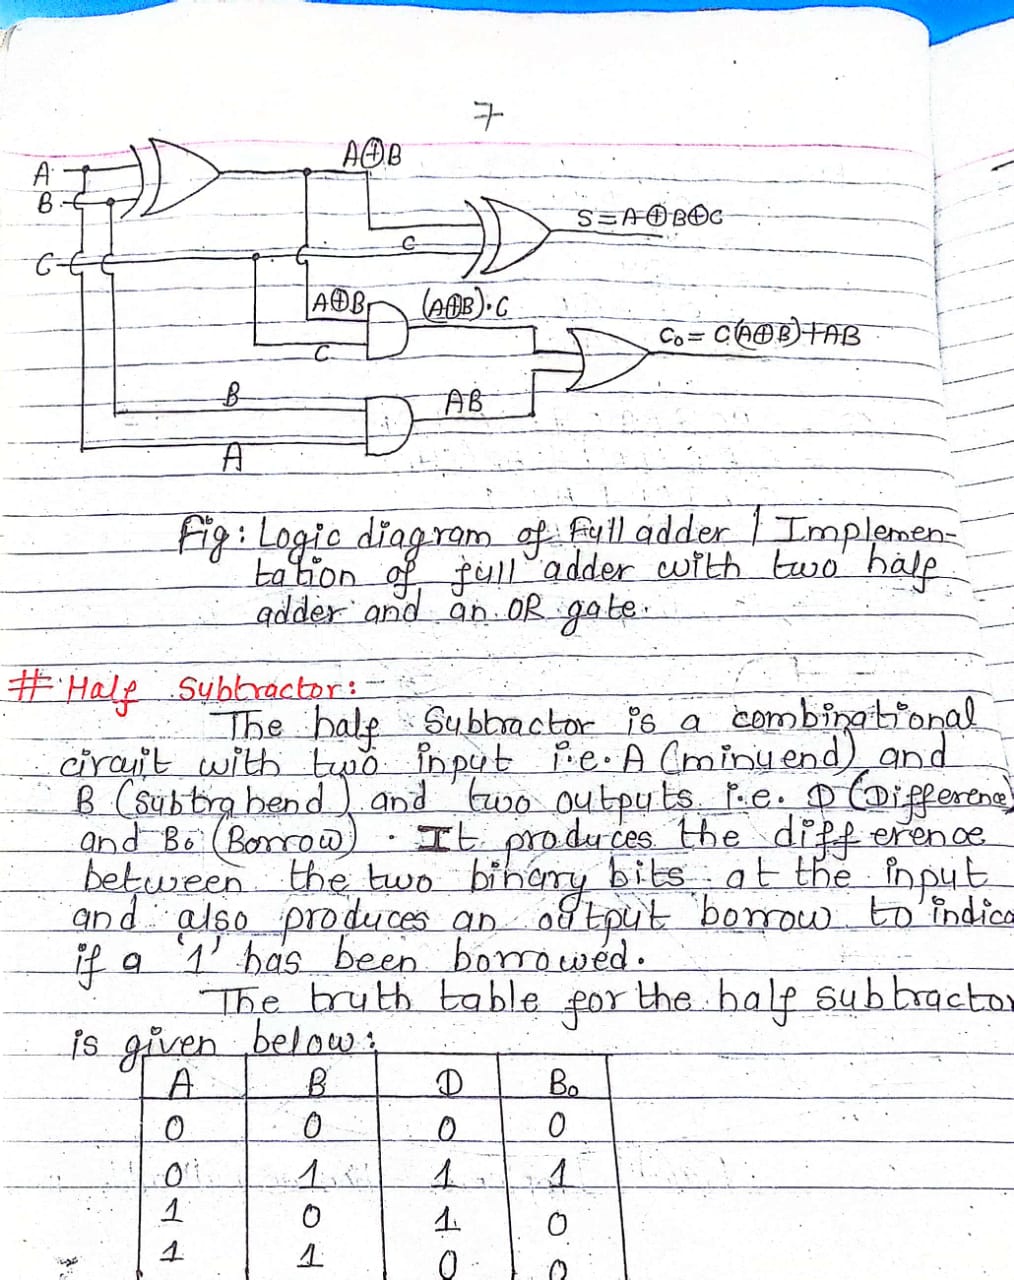 7
A⊕B
A
B
S=A⊕B⊕C
C
C
A⊕B
(A⊕B)·C
C₀= C(A⊕B)+AB
C
B
AB
A
Fig: Logic diagram of Full adder / Implemen-
tation of full adder with two half
adder and an OR gate.
# Half Subtractor:-
The half Subtractor is a combinational
circuit with two input i.e. A (minuend) and
B (subtrahend) and two outputs i.e. D (Difference)
and B₀ (Borrow). It produces the difference
between the two binary bits at the input
and also produces an output borrow to indica
if a '1' has been borrowed.
The truth table for the half subtractor
is given below:
A B D B₀
0 0 0 0
0 1 1 1
1 0 1 0
1 1 0 0